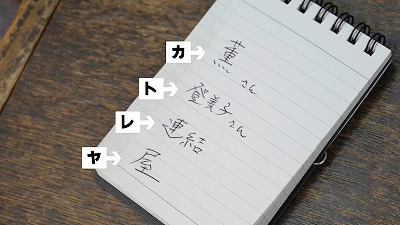 カ→ 薫さん
ト→ 登美子さん
レ→ 連結
ヤ→ 屋